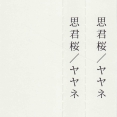 思君桜／ヤヤネ
思君桜／ヤヤネ